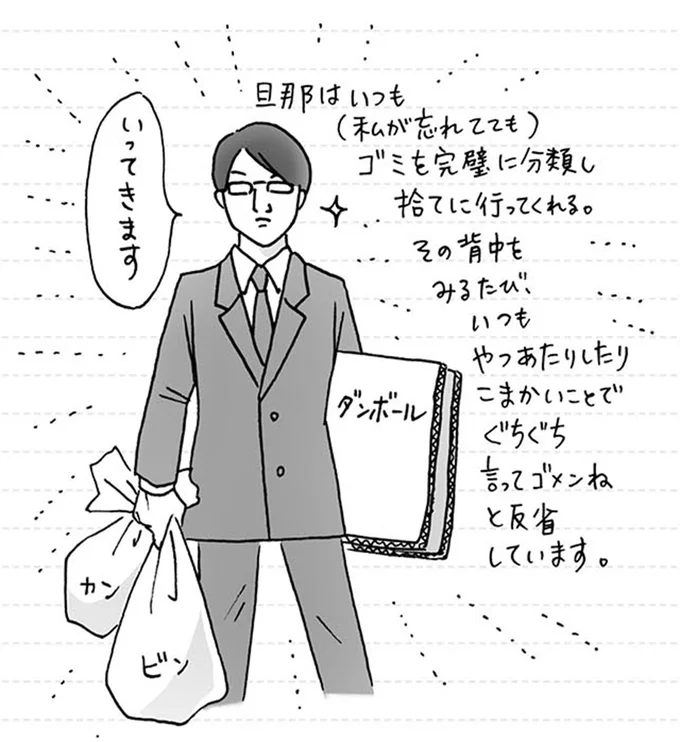 いってきます
旦那はいつも
(私が忘れてても)
ゴミを完璧に分類し
捨てに行ってくれる。
その背中を
みるたび、
いつも
やつあたりしたり
こまかいことで
ぐちぐち
言ってゴメンね
と反省
しています。
ダンボール
カン
ビン